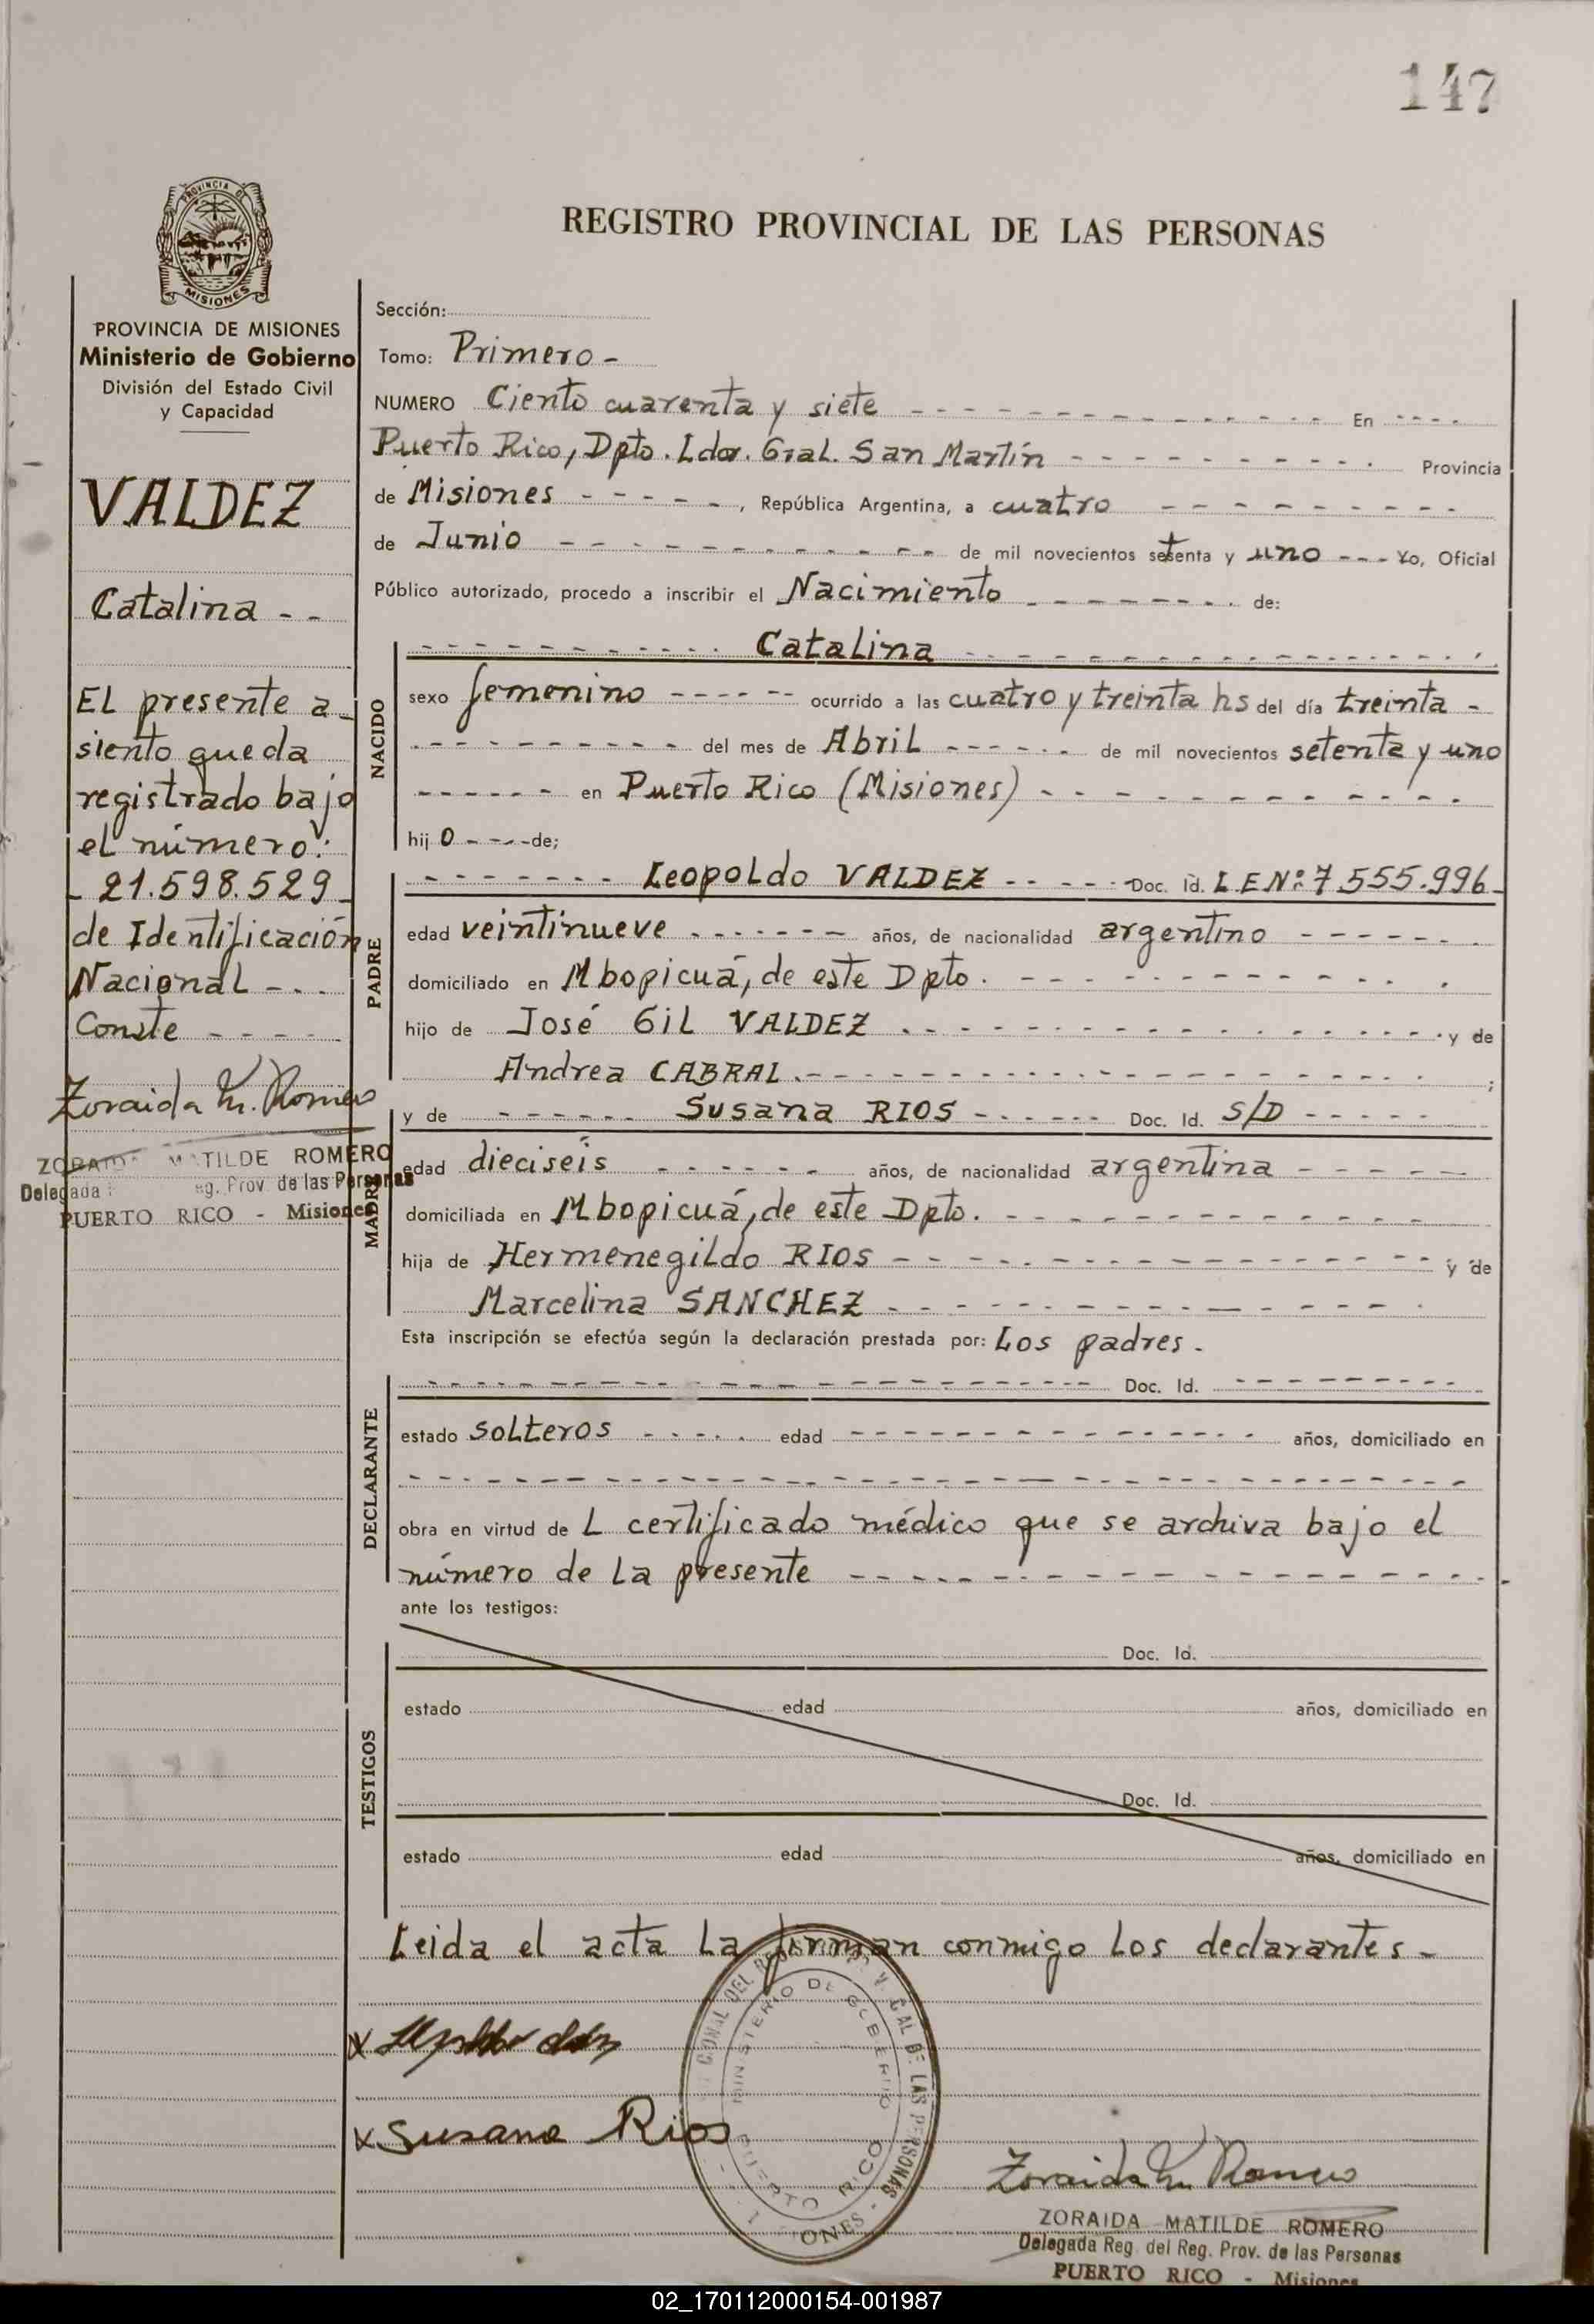 147
REGISTRO PROVINCIAL DE LAS PERSONAS
PROVINCIA DE
MISIONES
PROVINCIA DE MISIONES
Ministerio de Gobierno
División del Estado Civil
y Capacidad
VALDEZ
Catalina - -
El presente a-
siento queda
registrado bajo
el número:
- 21.598.529 -
de Identificación
Nacional - - -
Conste - - - -
Zoraida M. Romero
MATILDE ROMERO
Delegada Reg. Prov. de las Personas
PUERTO RICO - Misiones
Sección:
Tomo: Primero -
NUMERO Ciento cuarenta y siete - - - En - - - -
Puerto Rico, Dpto. Ldor. Gral. San Martín - - - Provincia
de Misiones - - - - -, República Argentina, a cuatro - - -
de Junio - - - de mil novecientos setenta y uno - - - Yo, Oficial
Público autorizado, procedo a inscribir el Nacimiento - - - de:
NACIDO
- - - Catalina - - -
sexo femenino - - - ocurrido a las cuatro y treinta hs del día treinta -
- - - del mes de Abril - - - de mil novecientos setenta y uno
- - - en Puerto Rico (Misiones) - - -
hij o - - - de;
PADRE
- - - Leopoldo VALDEZ - - - Doc. Id. L E Nº: 7.555.996 -
edad veintinueve - - - años, de nacionalidad argentino - - -
domiciliado en Mbopicuá, de este Dpto. - - -
hijo de José Gil VALDEZ - - - y de
Andrea CABRAL . - - - ;
MADRE
y de - - - Susana RIOS - - - Doc. Id. S/D - - -
edad dieciseis - - - años, de nacionalidad argentina - - -
domiciliada en Mbopicuá, de este Dpto. - - -
hija de Hermenegildo RIOS - - - y de
Marcelina SANCHEZ - - -
Esta inscripción se efectúa según la declaración prestada por: Los padres -
DECLARANTE
- - - Doc. Id. - - -
estado solteros - - - edad - - - años, domiciliado en
- - -
obra en virtud de L certificado médico que se archiva bajo el
número de La presente - - -
ante los testigos:
TESTIGOS
Doc. Id.
estado edad años, domiciliado en
Doc. Id.
estado edad años, domiciliado en
Leida el acta La firman conmigo Los declarantes -
x
x Susana Rios
MINISTERIO DE GOBIERNO
PUERTO RICO
DE LAS PERSONAS
Zoraida M. Romero
ZORAIDA MATILDE ROMERO
Delegada Reg. del Reg. Prov. de las Personas
PUERTO RICO - Misiones
02_170112000154-001987